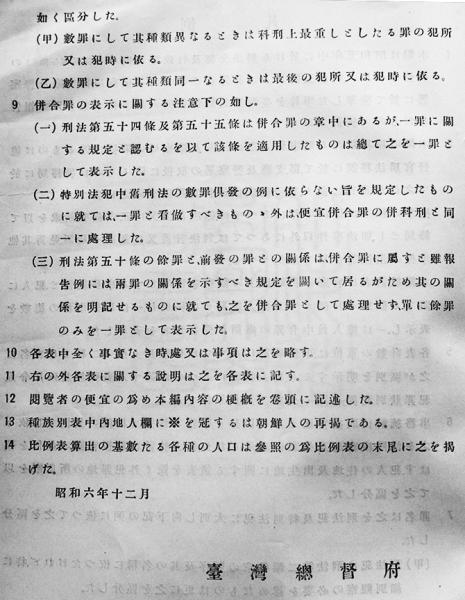 如く區分した。
(甲) 數罪にして其種類異なるときは科刑上最重しとしたる罪の犯所
又は犯時に依る。
(乙) 數罪にして其種類同一なるときは最後の犯所又は犯時に依る。
9 併合罪の表示に關する注意下の如し。
(一) 刑法第五十四條及第五十五條は併合罪の章中にあるが、一罪に關
する規定と認むるを以て該條を適用したものは總て之を一罪と
して表示した。
(二) 特別法犯中舊刑法の數罪俱發の例に依らない旨を規定したもの
に就ては、一罪と看做すべきものゝ外は、便宜併合罪の併科刑と同
一に處理した。
(三) 刑法第五十條の餘罪と、前發の罪との關係は、併合罪に屬すと雖報
告例には兩罪の關係を示すべき規定を闕いて居るがため其の關
係を明記せるものに就ても、之を併合罪として處理せず、單に餘罪
のみを一罪として表示した。
10 各表中全く事實なき時、處又は事項は之を略す。
11 右の外各表に關する說明は之を各表に記す。
12 閱覽者の便宜の爲め本編內容の梗槪を卷頭に記述した。
13 種族別表中內地人欄に※を冠するは朝鮮人の再揭である。
14 比例表算出の基數たる各種の人口は參照の爲比例表の末尾に之を揭
げた。
昭和六年十二月
臺灣總督府